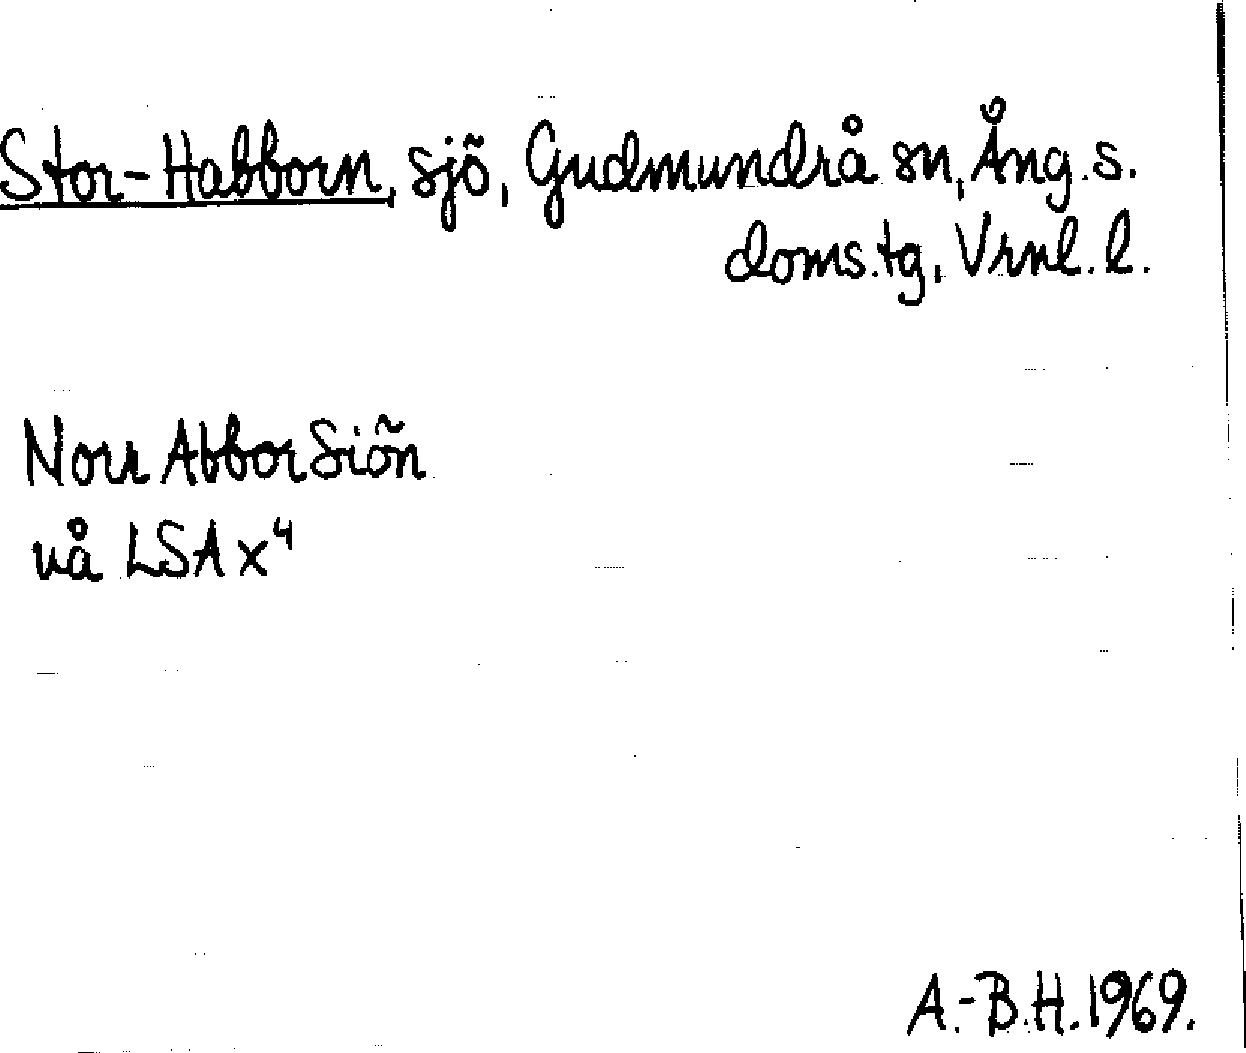 Stor-Habborn, sjö, Gudmundrå sn, Ång. s.
doms.tg, Vrnl. l.
Norr Abbor Siön
nå LSA x⁴
A.-B.H. 1969.